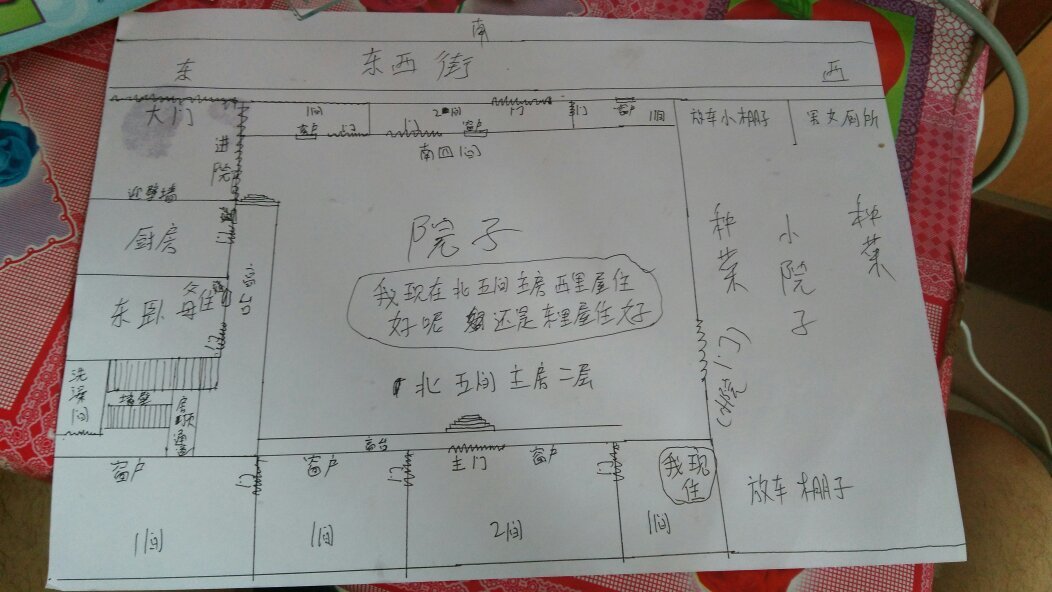 南
东
东西街
西
大门
进院
1间
窗户
门
2间
门
门
窗户
南四间
门
窗户
1间
放车小棚子
男女厕所
迎壁墙
厨房
门
东卧
父母住
门
院子
我现在北五间主房西里屋住
好呢 还是东里屋住好
种菜
小院子
种菜
(小院门)
北五间主房二层
洗澡间
墙壁
房顶通道
窗台
窗户
门
窗户
门
主门
窗户
门
我现住
放车棚子
1间
1间
2间
1间